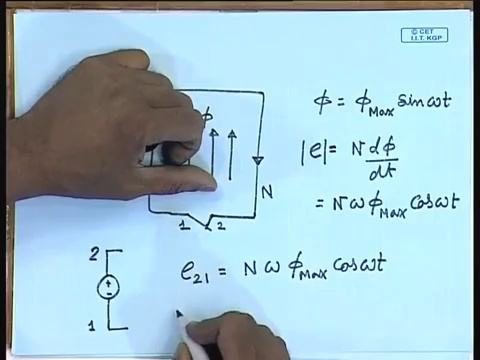 © CET
I.I.T. KGP
ϕ
ϕ = ϕMax sinωt
|e| = N dϕ/dt
= NωϕMax cosωt
N
1 2
2
+
-
1
e21 = NωϕMax cosωt